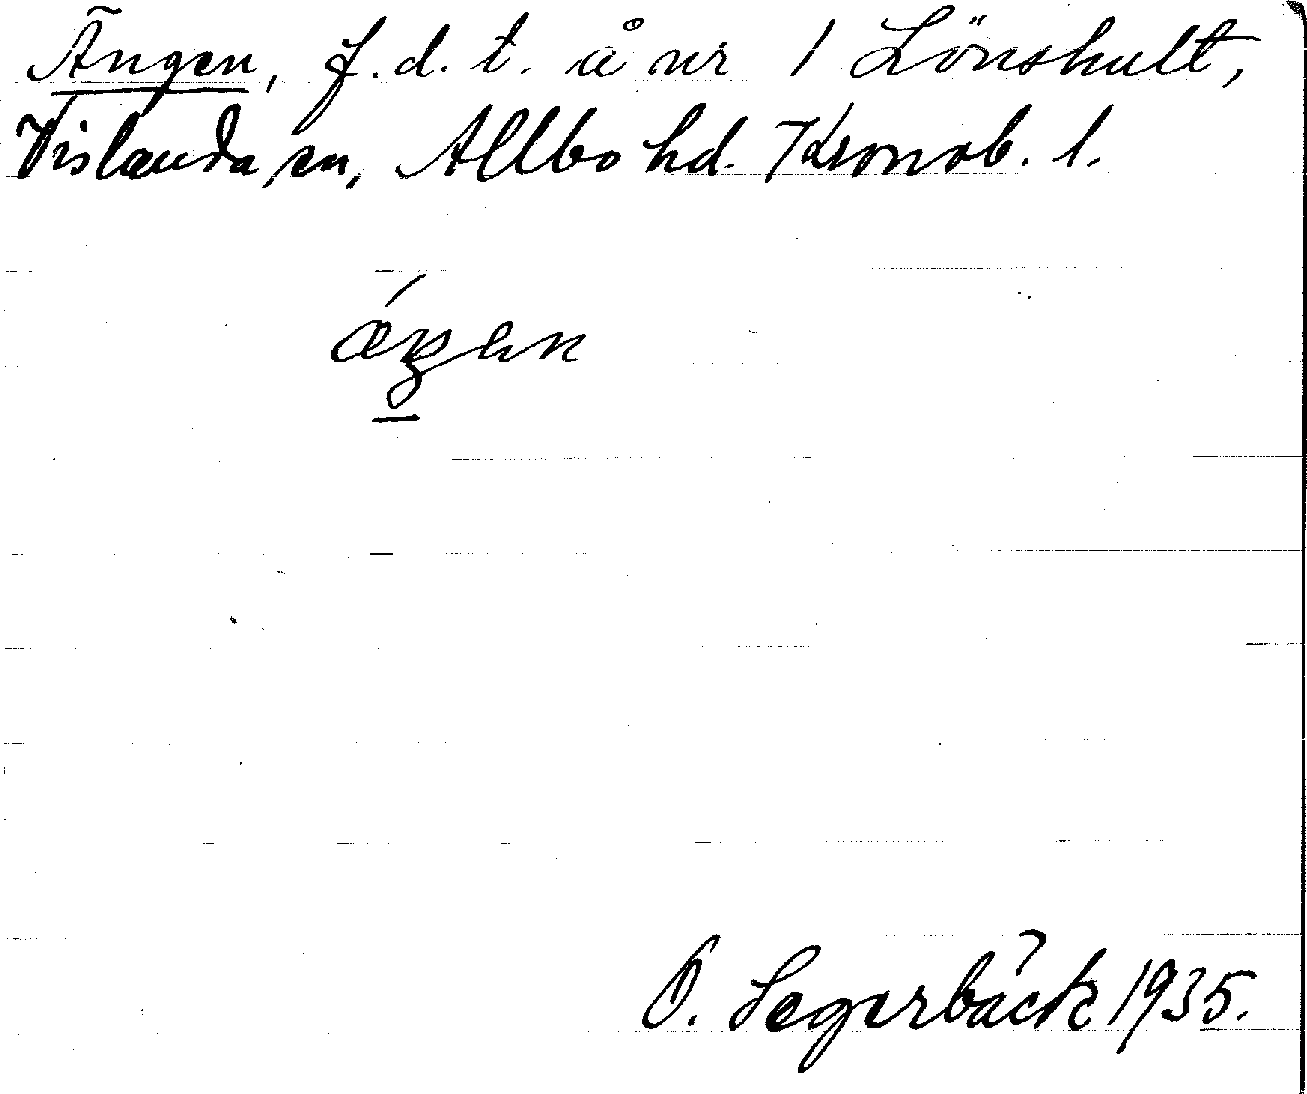 Ängen, f.d.t. å nr 1 Lönshult,
Vislanda sn, Allbo hd. Kronob. l.
O. Segerbäck 1935.